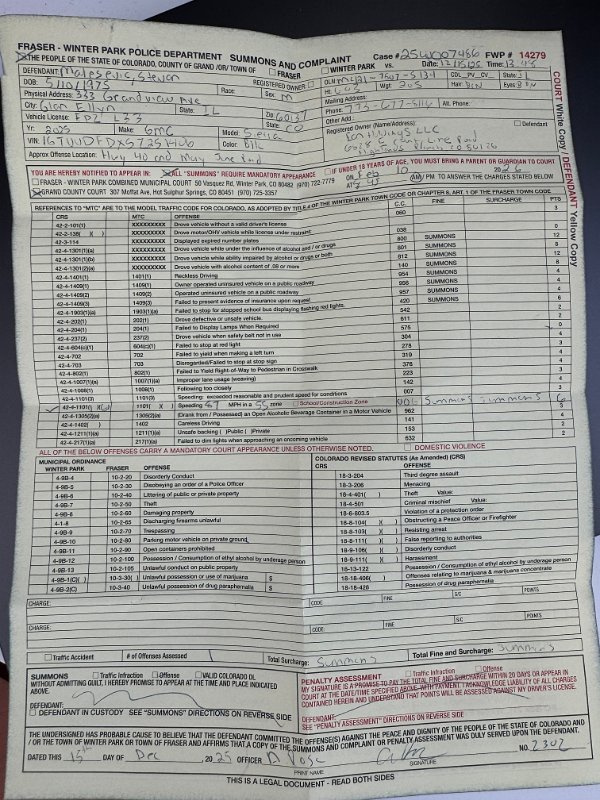 FRASER - WINTER PARK POLICE DEPARTMENT SUMMONS AND COMPLAINT Case# FWP # 14279
THE PEOPLE OF THE STATE OF COLORADO, COUNTY OF GRAND /OR/ TOWN OF FRASER WINTER PARK VS. Date: 12/15/25 Time: 13:48
DEFENDANT: Malesevic, Stevan
DOB: 5/10/1975 Race: Sex: M REGISTERED OWNER
DLN: CDL PV CV State: IL
Physical Address: 333 Grandview Ave Ht. 603 Wgt. 205 Hair: Bro Eyes: Bro
City: Glen Ellyn State: IL Zip: 60137 Mailing Address:
Phone: Alt. Phone:
Vehicle License: State: CO Other Add:
Yr: 2025 Make: GMC Model: Sierra Registered Owner (Name/Address): Defendant
VIN: Color: Blk
Approx Offense Location: Hwy 40 and
YOU ARE HEREBY NOTIFIED TO APPEAR IN: ALL "SUMMONS" REQUIRE MANDATORY APPEARANCE IF UNDER 18 YEARS OF AGE, YOU MUST BRING A PARENT OR GUARDIAN TO COURT
FRASER - WINTER PARK COMBINED MUNICIPAL COURT 50 Vasquez Rd, Winter Park, CO 80482 (970) 722-7779 on Feb 10 2026
GRAND COUNTY COURT 307 Moffat Ave, Hot Sulphur Springs, CO 80451 (970) 725-3357 AT 8:45 AM/ PM TO ANSWER THE CHARGES STATED BELOW
COURT White Copy / DEFENDANT Yellow Copy
REFERENCES TO "MTC" ARE TO THE MODEL TRAFFIC CODE FOR COLORADO, AS ADOPTED BY TITLE OF THE WINTER PARK TOWN CODE OR CHAPTER 8, ART. 1 OF THE FRASER TOWN CODE
CRS MTC OFFENSE C.C. FINE SURCHARGE PTS
42-2-101(1) XXXXXXXXX Drove vehicle without a valid driver's license 060 3
42-2-138( )( ) XXXXXXXXX Drove motor/OHV vehicle while license under restraint
42-3-114 XXXXXXXXX Displayed expired number plates 038 0
42-4-1301(1)(a) XXXXXXXXX Drove vehicle while under the influence of alcohol and / or drugs 800 SUMMONS 12
42-4-1301(1)(b) XXXXXXXXX Drove vehicle while ability impaired by alcohol or drugs or both 801 SUMMONS 8
42-4-1301(2)(a) XXXXXXXXX Drove vehicle with alcohol content of .08 or more 812 SUMMONS 12
42-4-1401(1) 1401(1) Reckless Driving 140 SUMMONS 8
42-4-1409(1) 1409(1) Owner operated uninsured vehicle on a public roadway 954 SUMMONS 4
42-4-1409(2) 1409(2) Operated uninsured vehicle on a public roadway 956 SUMMONS 4
42-4-1409(3) 1409(3) Failed to present evidence of insurance upon request 957 SUMMONS 4
42-4-1903(1)(a) 1903(1)(a) Failed to stop for stopped school bus displaying flashing red lights. 420 SUMMONS 6
42-4-202(1) 202(1) Drove defective or unsafe vehicle. 542 2
42-4-204(1) 204(1) Failed to Display Lamps When Required 511 2
42-4-237(2) 237(2) Drove vehicle when safety belt not in use 575 0
42-4-604(c)(1) 604(c)(1) Failed to stop at red light 304 4
42-4-702 702 Failed to yield when making a left turn 278 3
42-4-703 703 Disregarded/Failed to stop at stop sign 319 4
42-4-802(1) 802(1) Failed to Yield Right-of-Way to Pedestrian in Crosswalk 376 4
42-4-1007(1)(a) 1007(1)(a) Improper lane usage (weaving) 223 3
42-4-1008(1) 1008(1) Following too closely 142 4
42-4-1101(3) 1101(3) Speeding: exceeded reasonable and prudent speed for conditions 007 3
42-4-1101( )( ) 1101( )( ) Speeding MPH in a 55 zone School/Construction Zone Summons Summons 6
42-4-1305(2)(a) 1305(2)(a) (Drank from / Possessed) an Open Alcoholic Beverage Container in a Motor Vehicle 962
42-4-1402( ) 1402 Careless Driving 141 4
42-4-1211(1)(a) 1211(1)(a) Unsafe backing ( )Public ( )Private 153 2
42-4-217(1)(a) 217(1)(a) Failed to dim lights when approaching an oncoming vehicle 532 2
ALL OF THE BELOW OFFENSES CARRY A MANDATORY COURT APPEARANCE UNLESS OTHERWISE NOTED. DOMESTIC VIOLENCE
MUNICIPAL ORDINANCE COLORADO REVISED STATUTES (As Amended) (CRS)
WINTER PARK FRASER OFFENSE CRS OFFENSE
4-9B-4 10-2-20 Disorderly Conduct 18-3-204 Third degree assault
4-9B-5 10-2-30 Disobeying an order of a Police Officer 18-3-206 Menacing
4-9B-6 10-2-40 Littering of public or private property 18-4-401( ) Theft Value:
4-9B-7 10-2-50 Theft 18-4-501 Criminal mischief Value:
4-9B-8 10-2-60 Damaging property 18-6-803.5 Violation of a protection order
4-1-8 10-2-65 Discharging firearms unlawful 18-8-104( )( ) Obstructing a Peace Officer or Firefighter
4-9B-9 10-2-70 Trespassing 18-8-103( )( ) Resisting arrest
4-9B-10 10-2-80 Parking motor vehicle on private ground 18-8-111( )( ) False reporting to authorities
4-9B-11 10-2-90 Open containers prohibited 18-9-106( )( ) Disorderly conduct
4-9B-12 10-2-100 Possession / Consumption of ethyl alcohol by underage person 18-9-111( )( ) Harassment
4-9B-13 10-2-105 Unlawful conduct on public property 18-13-122 Possession / Consumption of ethyl alcohol by underage person
4-9B-1(C)( ) 10-3-30( ) Unlawful possession or use of marijuana $ 18-18-406( ) Offenses relating to marijuana & marijuana concentrate
4-9B-2(C) 10-3-40 Unlawful possession of drug paraphernalia $ 18-18-428 Possession of drug paraphernalia
CHARGE: CODE FINE S/C POINTS
CHARGE: CODE FINE S/C POINTS
Traffic Accident # of Offenses Assessed Total Surcharge: Summons Total Fine and Surcharge: Summons
SUMMONS Traffic Infraction Offense VALID COLORADO DL
WITHOUT ADMITTING GUILT, I HEREBY PROMISE TO APPEAR AT THE TIME AND PLACE INDICATED ABOVE.
DEFENDANT:
DEFENDANT IN CUSTODY SEE "SUMMONS" DIRECTIONS ON REVERSE SIDE
PENALTY ASSESSMENT Traffic Infraction Offense
MY SIGNATURE IS A PROMISE TO PAY THE TOTAL FINE AND SURCHARGE WITHIN 20 DAYS OR APPEAR IN COURT AT THE DATE/TIME SPECIFIED ABOVE. WITH PAYMENT I ACKNOWLEDGE LIABILITY OF ALL CHARGES CONTAINED HEREIN AND UNDERSTAND THAT POINTS WILL BE ASSESSED AGAINST MY DRIVER'S LICENSE.
DEFENDANT:
SEE "PENALTY ASSESSMENT" DIRECTIONS ON REVERSE SIDE
THE UNDERSIGNED HAS PROBABLE CAUSE TO BELIEVE THAT THE DEFENDANT COMMITTED THE OFFENSE(S) AGAINST THE PEACE AND DIGNITY OF THE PEOPLE OF THE STATE OF COLORADO AND / OR THE TOWN OF WINTER PARK OR TOWN OF FRASER AND AFFIRMS THAT A COPY OF THE SUMMONS AND COMPLAINT OR PENALTY ASSESSMENT WAS DULY SERVED UPON THE DEFENDANT.
DATED THIS 15th DAY OF Dec, 2025 OFFICER D Vose NO. 2302
PRINT NAME SIGNATURE
THIS IS A LEGAL DOCUMENT - READ BOTH SIDES